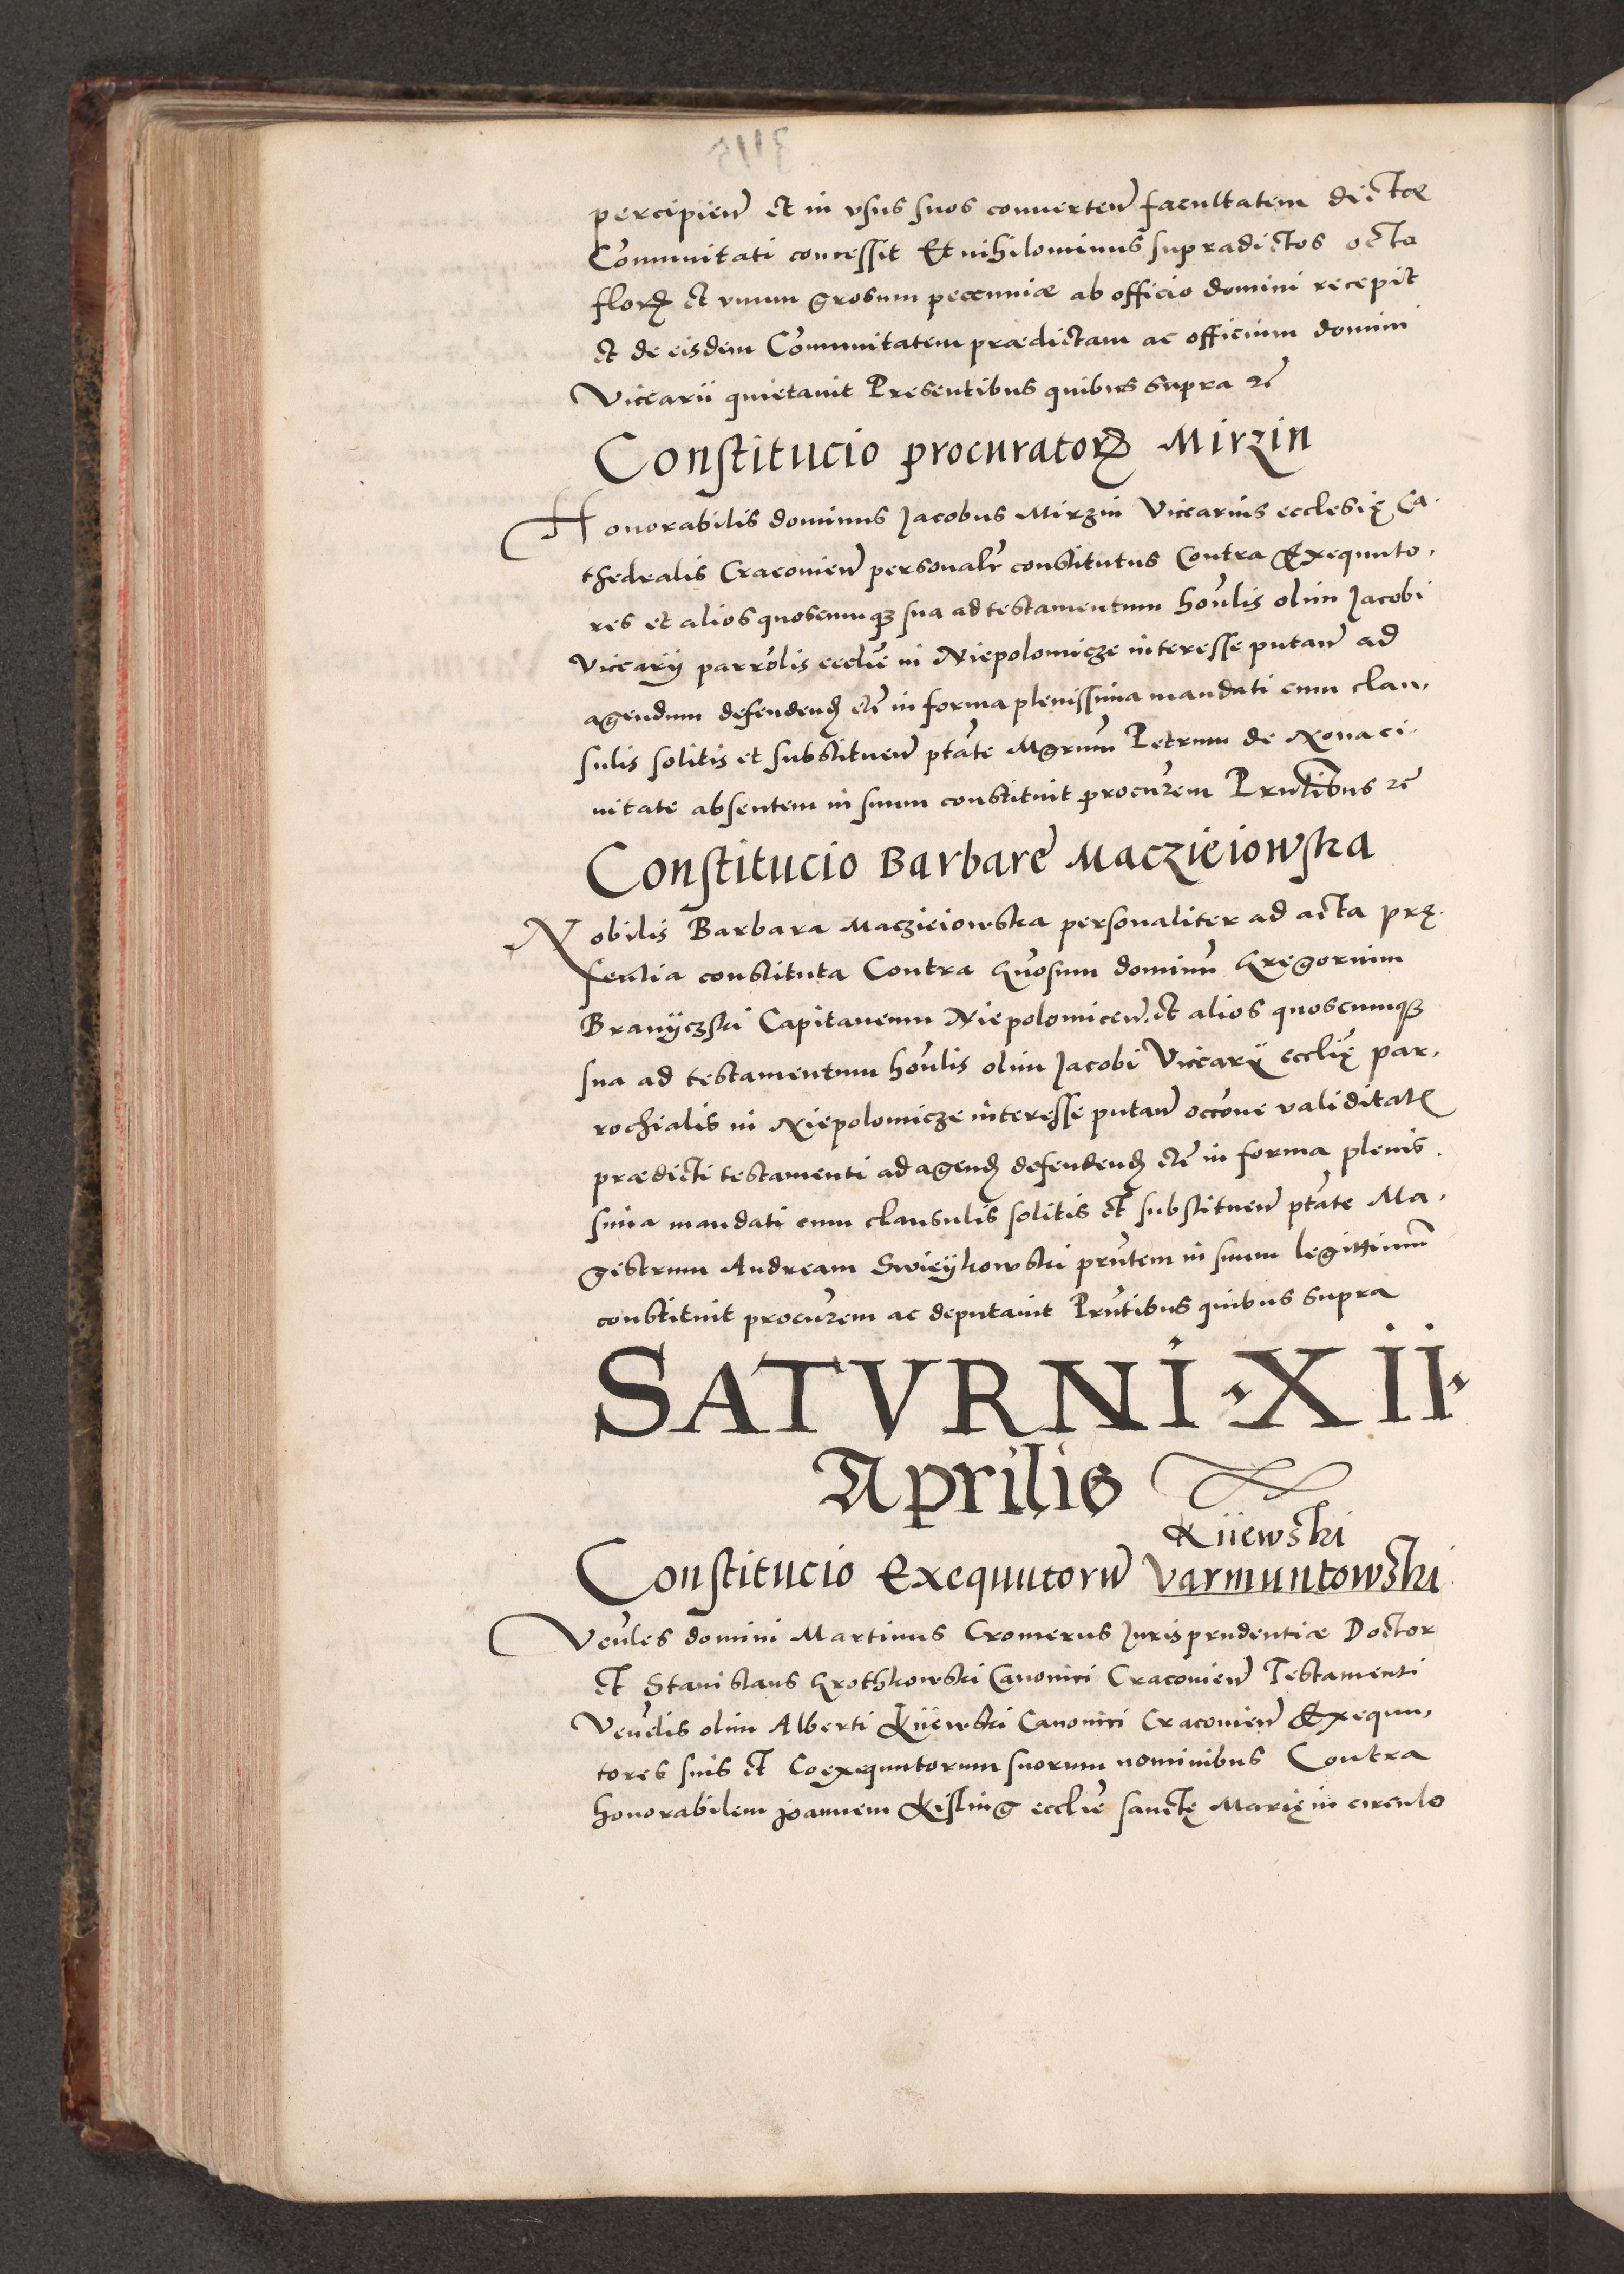 percipien̄ et in vsus suos conuerten̄ facultatem dictæ
Cōmunitati concessit Et nihilominus supradictos octo
floꝝ et vnum grosum pecuniæ ab officio domini recepit
et de eisdem Cōmunitatem prædictam ac officium domini
Vicearii quietauit Presentibus quibus supra ꝛc̄
Constitucio procuratoꝝ Mirzin
Honorabilis dominus Jacobus Mirzin Vicearius ecclesię Ca.
thedralis Cracouien̄ personalr̄ constitutus Contra Exequuto,
res et alios quoscunqꝫ sua ad testamentum hon̄lis olim Jacobi
Vicearÿ parrōlis eccl̄ie in Niepolomicze interesse putan̄ ad
agendum defendenḑ etc̄ in forma plenissima mandati cum clau,
sulis solitis et substituen̄ ptāte Mgrum̄ Petrum de Noua ci.
uitate absentem in suum constituit procur̄em Prn̄tibus ꝛc̄
Constitucio Barbarē Maczieiowska
Nobilis Barbara Maczieiowska personaliter ad acta prę.
sentia constituta Contra Gn̄osum dominū Gregorium
Branÿczski Capitaneum Niepolomicen̄. et alios quoscumqꝫ
sua ad testamentum hon̄lis olim Jacobi Vicearÿ eccl̄ię par,
rochialis in Niepolomicze interesse putan̄ occōne validitatꝭ
prædicti testamenti ad agenḑ defendenḑ etc̄ in forma plenis.
sima mandati cum clausulis solitis et substituen̄ ptāte Ma,
gistrum Andream Swieÿkowski prn̄tem in suum legittimum̄
constituit procur̄em ac deputauit Prn̄tibus quibus supra
SATVRNI · XII ·
Aprilis
Kiiewski
Constitucio Exequutorū Varmuntowski
Ven̄les domini Martinus Cromerus Jurisprudentiæ Doctor
et Stanislaus Grothkowski Canonici Cracouien̄ Testamenti
Ven̄elis olim Alberti Kiiewski Canonici Cracouien̄ Exequu,
tores suis et Coexequutorum suorum nominibus Contra
honorabilem Joannem Kisling eccl̄ie sanctę Marię in circulo